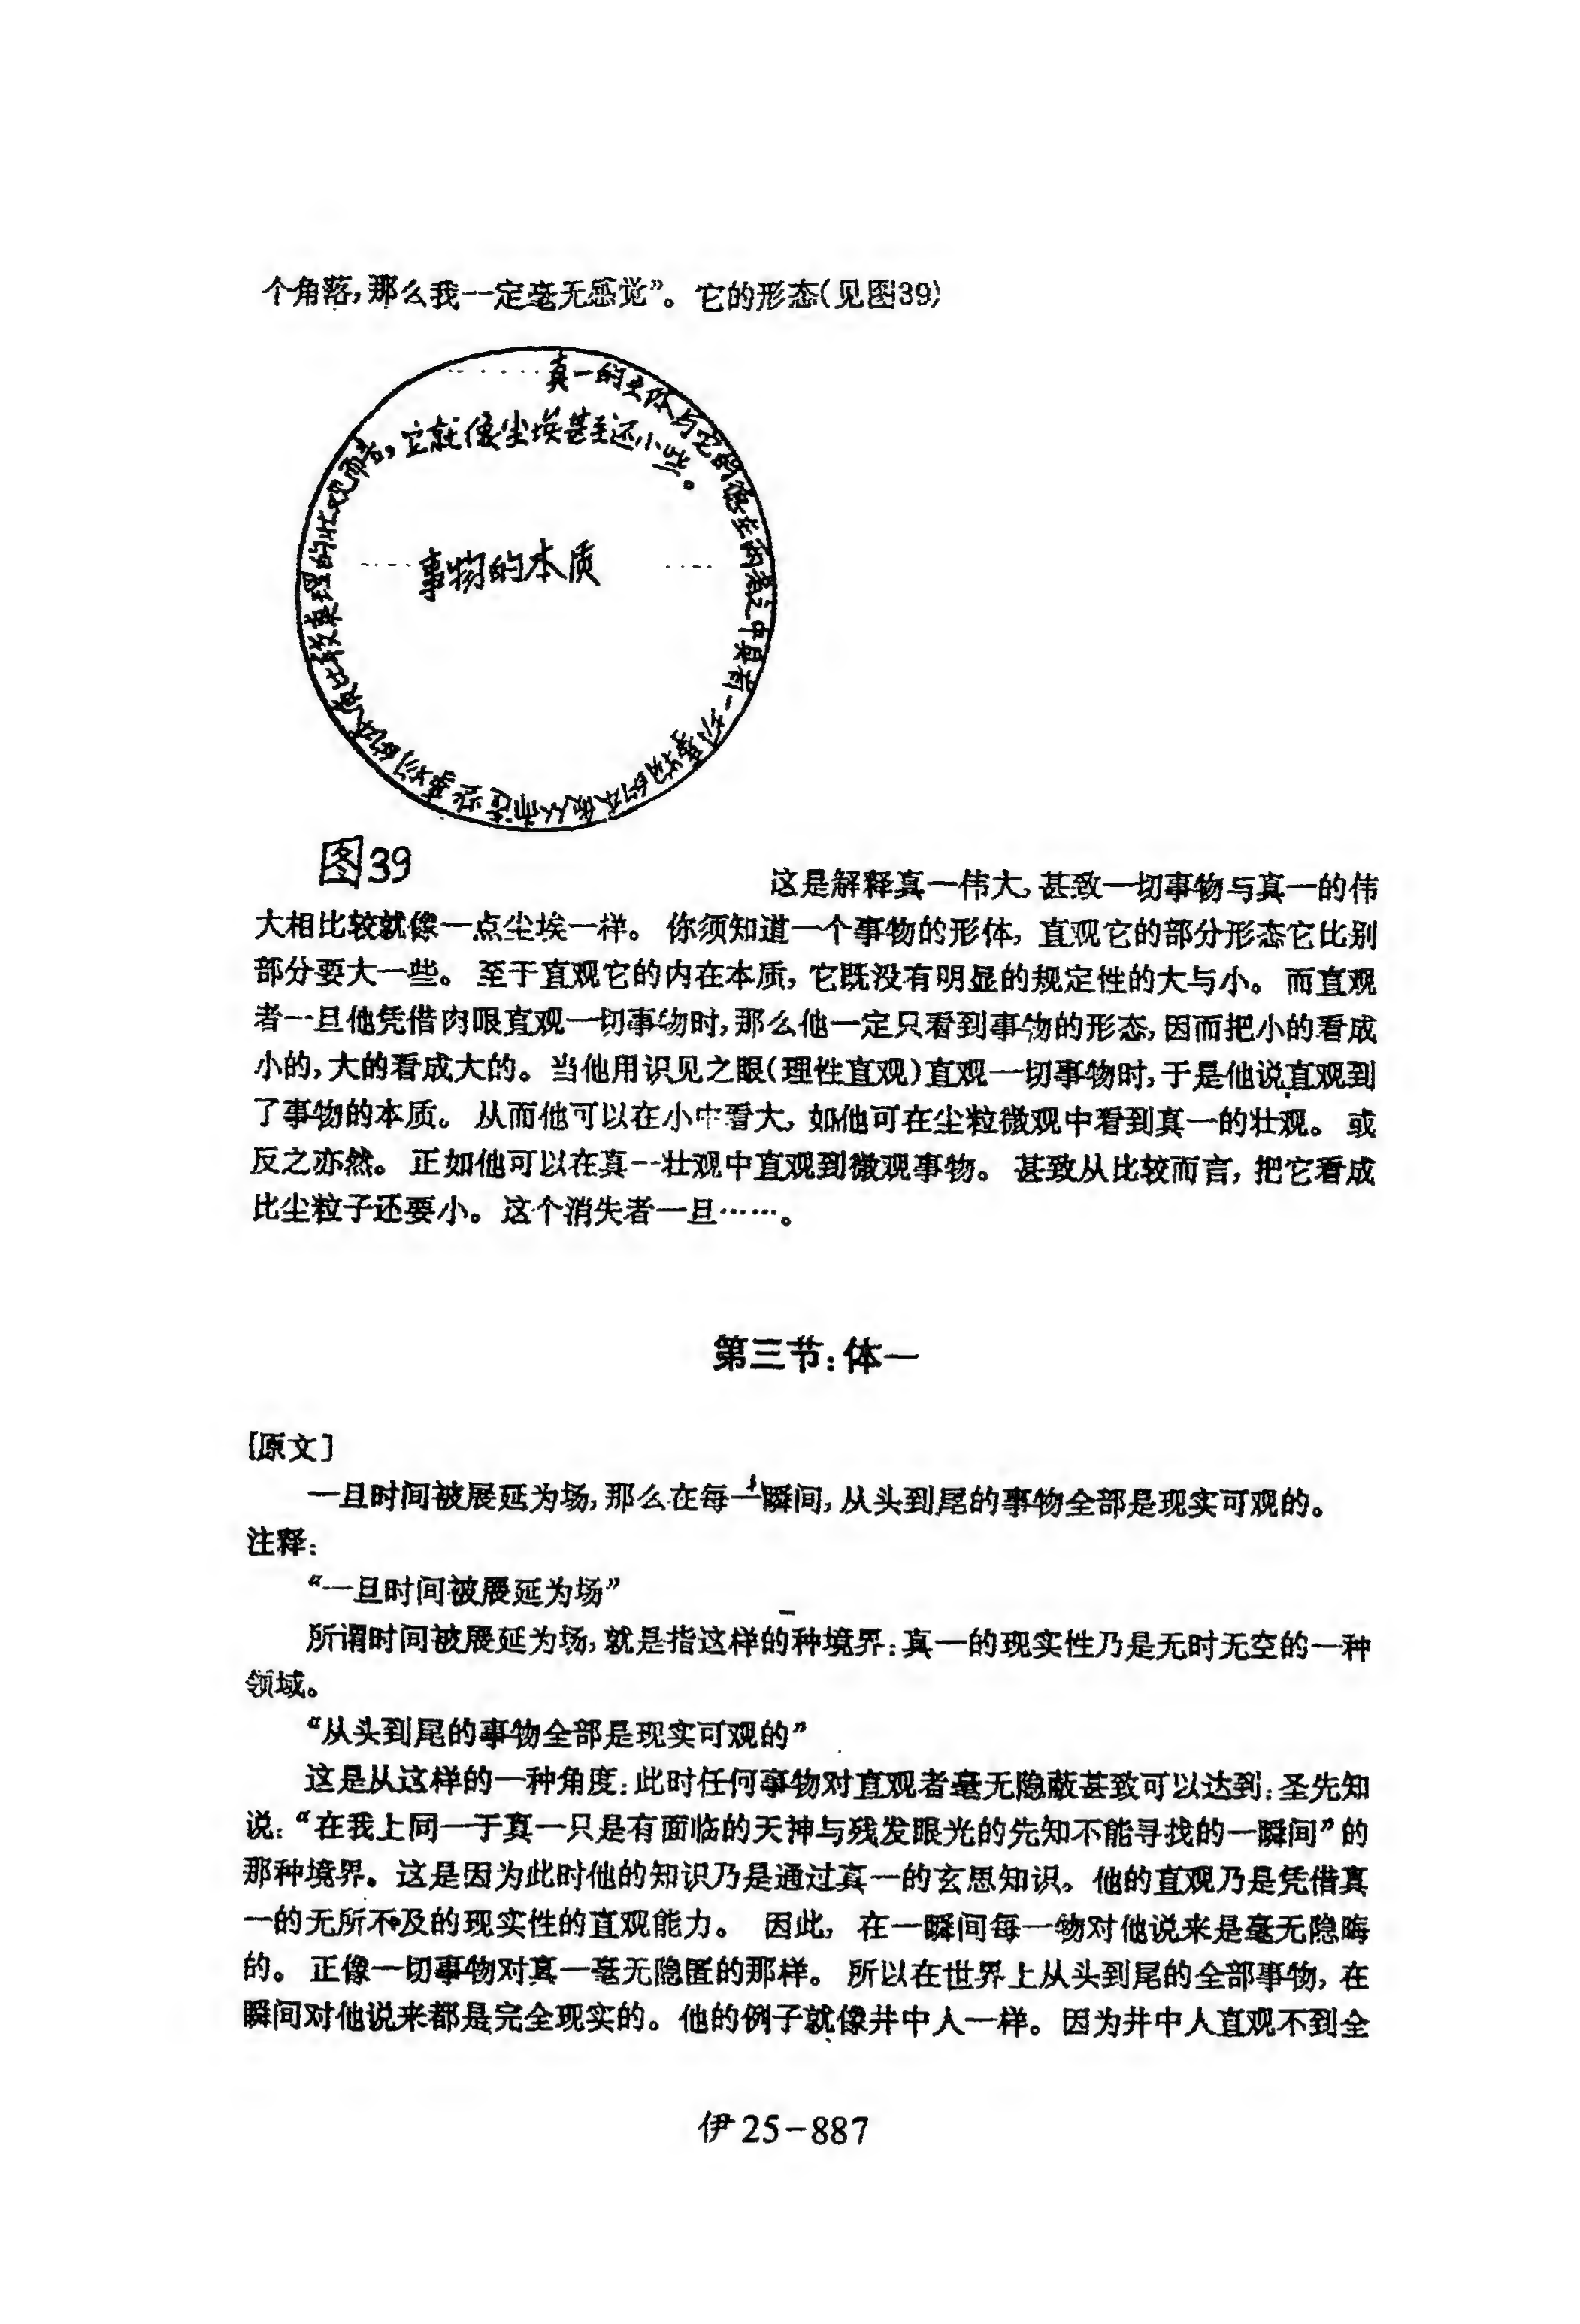 个角落，那么我一定毫无感觉”。它的形态(见图39)
真一的主体与它的德性两者之中具有一切事物的本质从而这些事物的本质比较真理的壮观而言，它就像尘埃甚至还小些。
事物的本质
图39
这是解释真一伟大，甚致一切事物与真一的伟
大相比较就像一点尘埃一样。你须知道一个事物的形体，直观它的部分形态它比别
部分要大一些。至于直观它的内在本质，它既没有明显的规定性的大与小。而直观
者一旦他凭借肉眼直观一切事物时，那么他一定只看到事物的形态，因而把小的看成
小的，大的看成大的。当他用识见之眼(理性直观)直观一切事物时，于是他说直观到
了事物的本质。从而他可以在小中看大，如他可在尘粒微观中看到真一的壮观。或
反之亦然。正如他可以在真一壮观中直观到微观事物。甚致从比较而言，把它看成
比尘粒子还要小。这个消失者一旦……。
第三节：体一
[原文]
一旦时间被展延为场，那么在每一个瞬间，从头到尾的事物全部是现实可观的。
注释：
“一旦时间被展延为场”
所谓时间被展延为场，就是指这样的一种境界：真一的现实性乃是无时无空的一种
领域。
“从头到尾的事物全部是现实可观的”
这是从这样的一种角度：此时任何事物对直观者毫无隐蔽甚致可以达到：圣先知
说：“在我上同一于真一只是有面临的天神与残发眼光的先知不能寻找的一瞬间”的
那种境界。这是因为此时他的知识乃是通过真一的玄思知识，他的直观乃是凭借真
一的无所不及的现实性的直观能力。因此，在一瞬间每一物对他说来是毫无隐晦
的。正像一切事物对真一毫无隐匿的那样。所以在世界上从头到尾的全部事物，在
瞬间对他说来都是完全现实的。他的例子就像井中人一样。因为井中人直观不到全
伊25-887